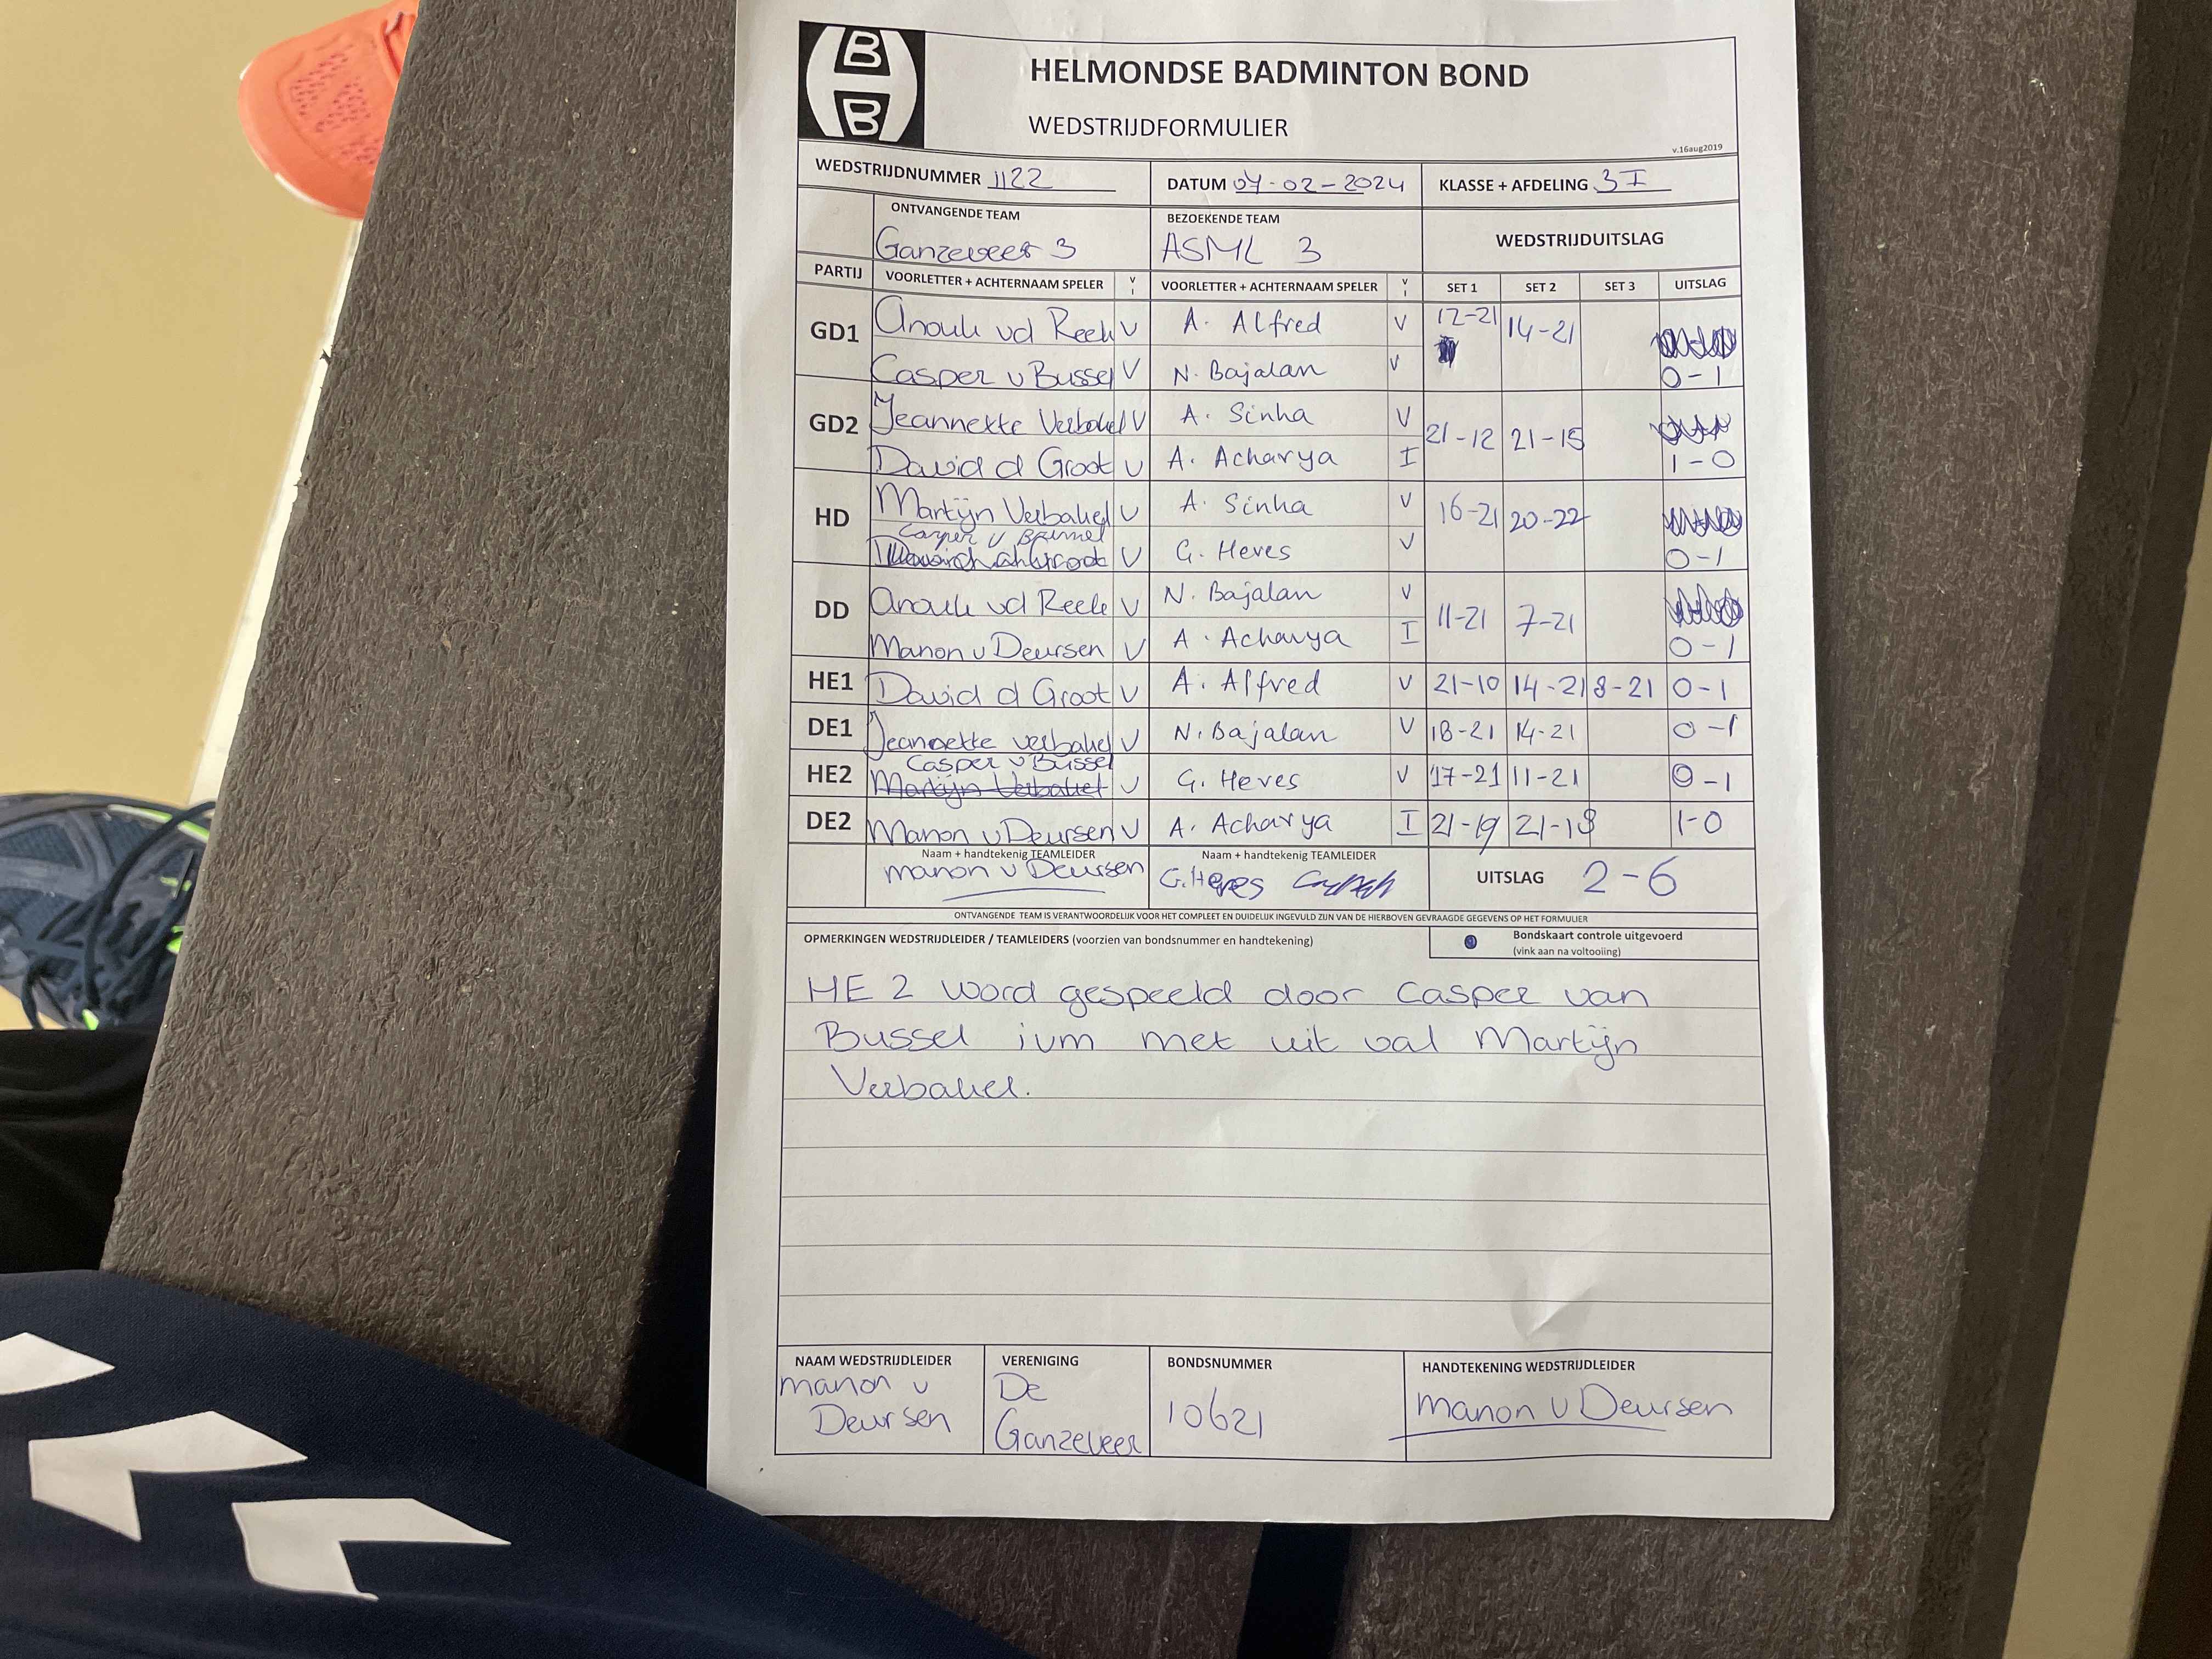 B
B
HELMONDSE BADMINTON BOND
WEDSTRIJDFORMULIER
v.16aug2019
WEDSTRIJDNUMMER 1122 DATUM 07-02-2024 KLASSE + AFDELING 3I
ONTVANGENDE TEAM BEZOEKENDE TEAM WEDSTRIJDUITSLAG
Ganzeveer 3 ASML 3
PARTIJ VOORLETTER + ACHTERNAAM SPELER V I VOORLETTER + ACHTERNAAM SPELER V I SET 1 SET 2 SET 3 UITSLAG
GD1 Anouk vd Reek V A. Alfred V 12-21 14-21
Casper v Bussel V N. Bajalan V 0-1
GD2 Jeannette Verbakel V A. Sinha V 21-12 21-15
David d Groot V A. Acharya I 1-0
HD Martijn Verbakel V A. Sinha V 16-21 20-22
Casper v Bussel V G. Heres V 0-1
DD Anouk vd Reek V N. Bajalan V 11-21 7-21
Manon v Deursen V A. Acharya I 0-1
HE1 David d Groot V A. Alfred V 21-10 14-21 8-21 0-1
DE1 Jeannette Verbakel V N. Bajalan V 18-21 14-21 0-1
Casper v Bussel
HE2 Martijn Verbakel V G. Heres V 17-21 11-21 0-1
DE2 Manon v Deursen V A. Acharya I 21-19 21-18 1-0
Naam + handtekenig TEAMLEIDER Naam + handtekenig TEAMLEIDER UITSLAG 2-6
manon v Deursen G. Heres
ONTVANGENDE TEAM IS VERANTWOORDELIJK VOOR HET COMPLEET EN DUIDELIJK INGEVULD ZIJN VAN DE HIERBOVEN GEVRAAGDE GEGEVENS OP HET FORMULIER
OPMERKINGEN WEDSTRIJDLEIDER / TEAMLEIDERS (voorzien van bondsnummer en handtekening) Bondskaart controle uitgevoerd
(vink aan na voltooiing)
HE 2 word gespeeld door Casper van
Bussel ivm met uit val Martijn
Verbakel.
NAAM WEDSTRIJDLEIDER VERENIGING BONDSNUMMER HANDTEKENING WEDSTRIJDLEIDER
manon v De 10621 manon v Deursen
Deursen Ganzeveer